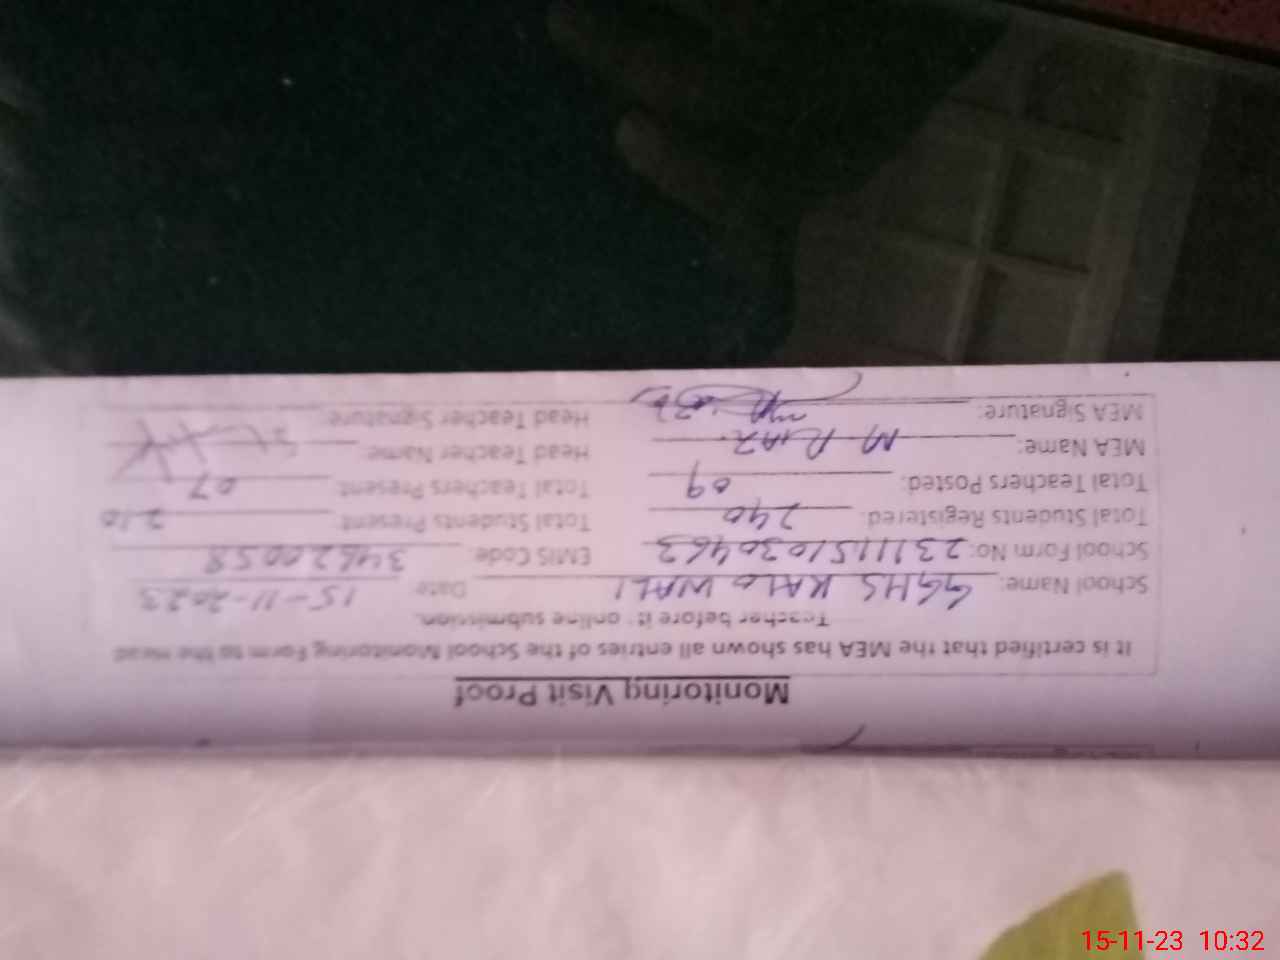 Monitoring Visit Proof
It is certified that the MEA has shown all entries of the School Monitoring Form to the Head
Teacher before it online submission.
School Name: GGHS KALO WALI Date: 15-11-2023
School Form No: 2311151030463 EMIS Code: 34620058
Total Students Registered: 240 Total Students Present: 210
Total Teachers Posted: 09 Total Teachers Present: 07
MEA Name: M RIAZ Head Teacher Name:
MEA Signature: Head Teacher Signature:
15-11-23 10:32